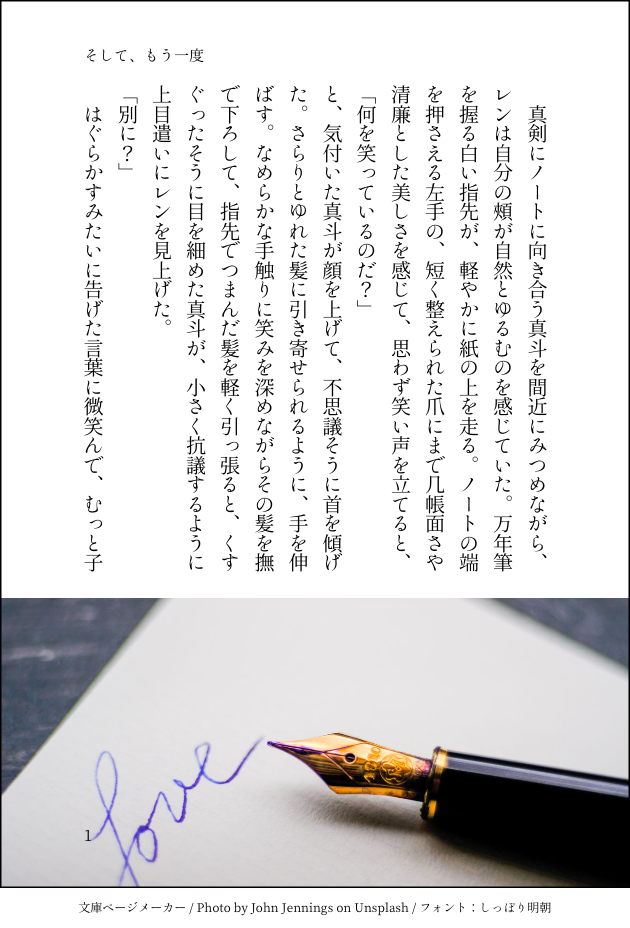 そして、もう一度
　真剣にノートに向き合う真斗を間近にみつめながら、
レンは自分の頰が自然とゆるむのを感じていた。万年筆
を握る白い指先が、軽やかに紙の上を走る。ノートの端
を押さえる左手の、短く整えられた爪にまで几帳面さや
清廉とした美しさを感じて、思わず笑い声を立てると、
「何を笑っているのだ？」
と、気付いた真斗が顔を上げて、不思議そうに首を傾げ
た。さらりとゆれた髪に引き寄せられるように、手を伸
ばす。なめらかな手触りに笑みを深めながらその髪を撫
で下ろして、指先でつまんだ髪を軽く引っ張ると、くす
ぐったそうに目を細めた真斗が、小さく抗議するように
上目遣いにレンを見上げた。
「別に？」
　はぐらかすみたいに告げた言葉に微笑んで、むっと子
love
1
文庫ページメーカー / Photo by John Jennings on Unsplash / フォント：しっぽり明朝